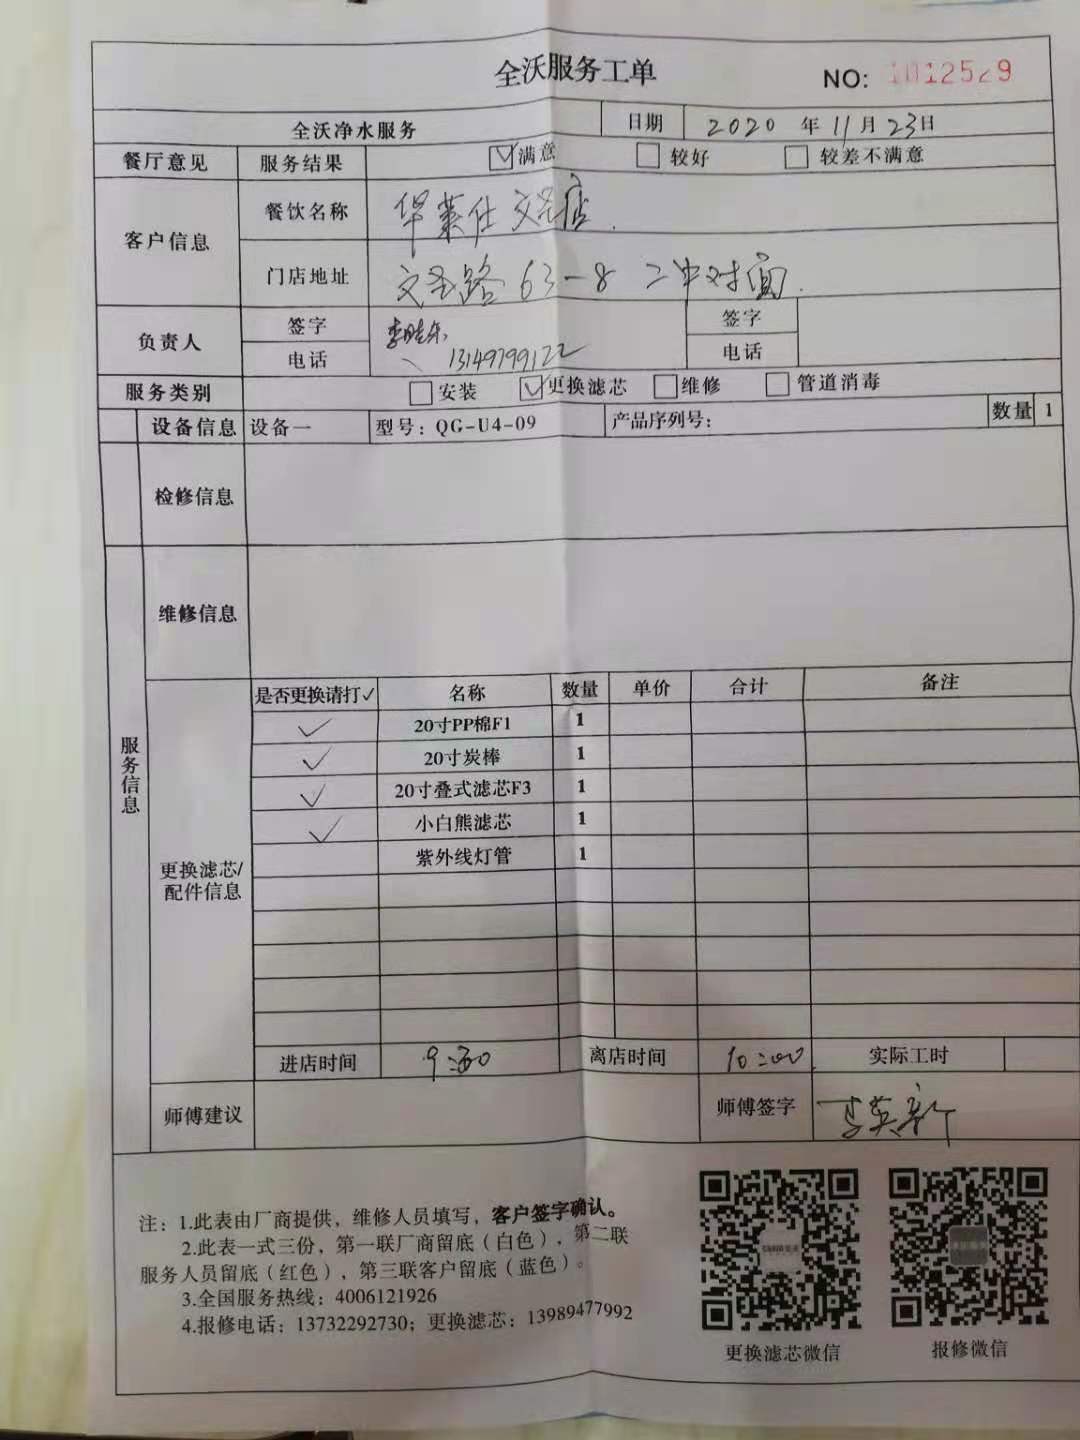 全沃服务工单 NO: 1012529
全沃净水服务 日期 2020 年 11 月 23 日
餐厅意见 服务结果 ☑满意 □较好 □较差不满意
客户信息 餐饮名称 华莱仕文圣店
门店地址 文圣路 63-8 二中对面
负责人 签字 签字
电话 13149799122 电话
服务类别 □安装 ☑更换滤芯 □维修 □管道消毒
设备信息 设备一 型号: QG-U4-09 产品序列号: 数量 1
检修信息
维修信息
服务信息
更换滤芯/
配件信息
是否更换请打✓ 名称 数量 单价 合计 备注
✓ 20寸PP棉F1 1
✓ 20寸炭棒 1
✓ 20寸叠式滤芯F3 1
✓ 小白熊滤芯 1
紫外线灯管 1
进店时间 离店时间 10:00 实际工时
师傅建议 师傅签字 李英新
注: 1.此表由厂商提供，维修人员填写，客户签字确认。
2.此表一式三份，第一联厂商留底（白色），第二联
服务人员留底（红色），第三联客户留底（蓝色）。
3.全国服务热线: 4006121926
4.报修电话: 13732292730; 更换滤芯: 13989477992
更换滤芯微信 报修微信